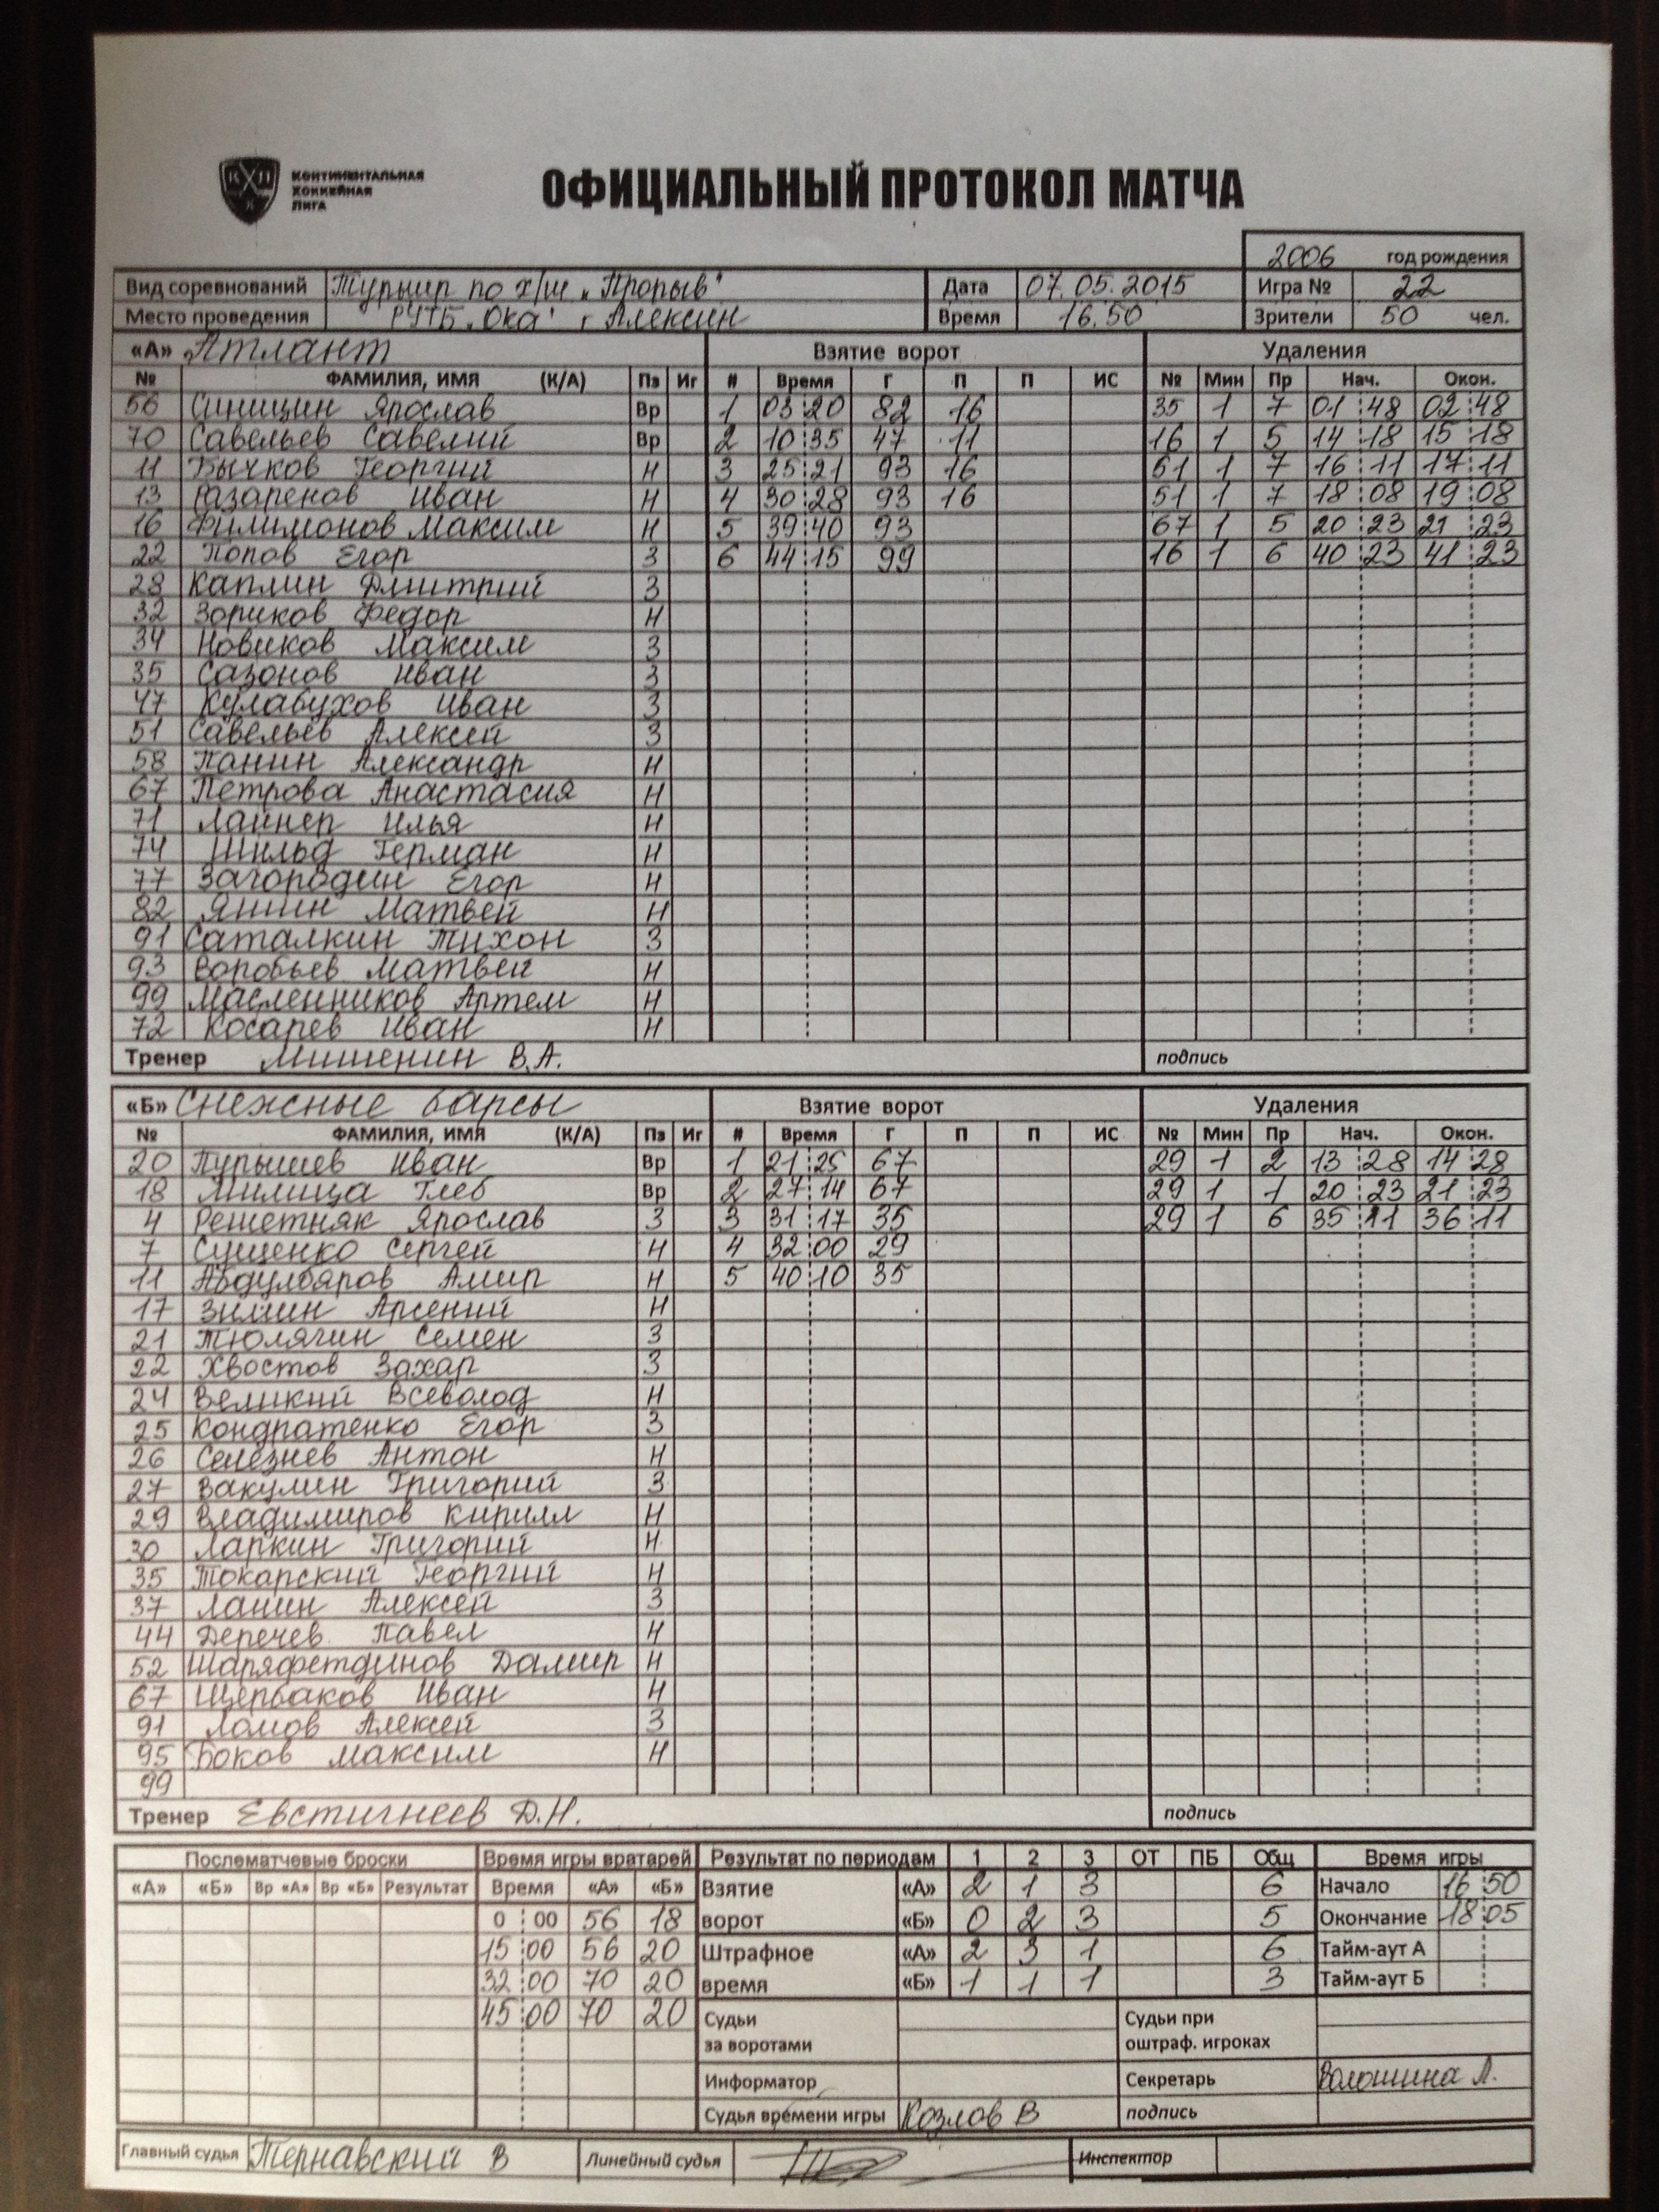 КОНТИНЕНТАЛЬНАЯ
ХОККЕЙНАЯ
ЛИГА
ОФИЦИАЛЬНЫЙ ПРОТОКОЛ МАТЧА
2006 год рождения
Вид соревнований Турнир по х/ш "Прорыв" Дата 07.05.2015 Игра № 22
Место проведения РУТБ "Ока" г Алексин Время 16.50 Зрители 50 чел.
«А» Атлант Взятие ворот Удаления
№ ФАМИЛИЯ, ИМЯ (К/А) Пз Иг # Время Г П П ИС № Мин Пр Нач. Окон.
56 Синицин Ярослав Вр 1 03:20 82 16 35 1 7 01:48 02:48
70 Савельев Савелий Вр 2 10:35 47 11 16 1 5 14:18 15:18
11 Бычков Георгий Н 3 25:21 93 16 51 1 7 16:11 17:11
13 Назаренов Иван Н 4 30:28 93 16 51 1 7 18:08 19:08
16 Филимонов Максим Н 5 39:40 93 67 1 5 20:23 21:23
22 Попов Егор З 6 44:15 99 16 1 6 40:23 41:23
28 Каплин Дмитрий З
32 Зориков Федор Н
34 Новиков Максим З
35 Сазонов Иван З
47 Кулабухов Иван З
51 Савельев Алексей З
58 Панин Александр Н
67 Петрова Анастасия Н
71 Лайнер Илья Н
74 Шильд Герман Н
77 Загородин Егор Н
82 Яшин Матвей Н
91 Саталкин Тихон З
93 Воробьев Матвей Н
99 Масленников Артем Н
72 Косарев Иван Н
Тренер Мишенин В.А. подпись
«Б» Снежные барсы Взятие ворот Удаления
№ ФАМИЛИЯ, ИМЯ (К/А) Пз Иг # Время Г П П ИС № Мин Пр Нач. Окон.
20 Пурышев Иван Вр 1 21:25 67 29 1 2 13:28 14:28
18 Милица Глеб Вр 2 27:14 67 29 1 1 20:23 21:23
4 Решетняк Ярослав З 3 31:17 35 29 1 6 35:11 36:11
7 Сущенко Сергей Н 4 32:00 29
11 Абдулбяров Амир Н 5 40:10 35
17 Зимин Арсений Н
21 Тюлячин Семен З
22 Хвостов Захар З
24 Великий Всеволод Н
25 Кондратенко Егор З
26 Селезнев Антон Н
27 Вакулин Григорий З
29 Владимиров Кирилл Н
30 Ларкин Григорий Н
35 Токарский Георгий Н
37 Ланин Алексей З
44 Деречев Павел Н
52 Шаряфетдинов Дамир Н
67 Щербаков Иван Н
91 Ломов Алексей З
95 Боков Максим Н
99
Тренер Евстигнеев Д.Н. подпись
Послематчевые броски Время игры вратарей Результат по периодам 1 2 3 ОТ ПБ Общ Время игры
«А» «Б» Вр «А» Вр «Б» Результат Время «А» «Б» Взятие «А» 2 1 3 6 Начало 16:50
0:00 56 18 ворот «Б» 0 2 3 5 Окончание 18:05
15:00 56 20 Штрафное «А» 2 3 1 6 Тайм-аут А
32:00 70 20 время «Б» 1 1 1 3 Тайм-аут Б
45:00 70 20 Судьи Судьи при
за воротами оштраф. игроках
Информатор Секретарь Волошина Л.
Судья времени игры Козлов В подпись
Главный судья Тернавский В Линейный судья Инспектор